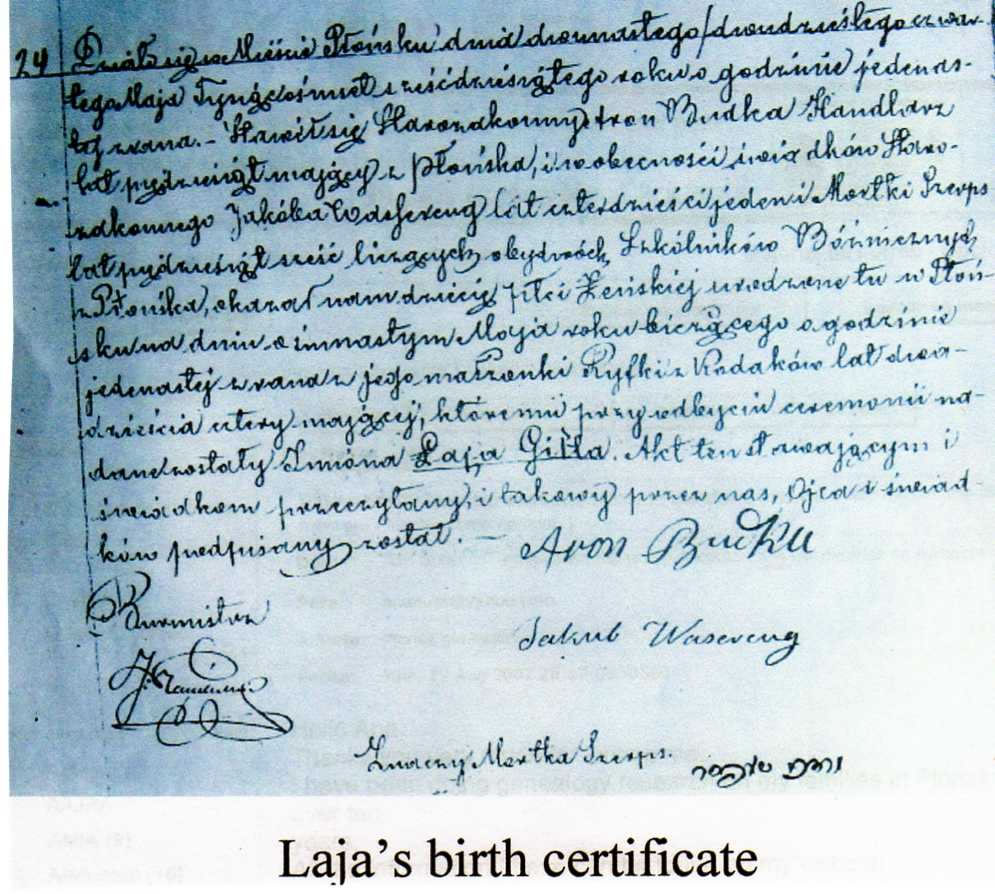 24 Działo się w Mieście Płońsku dnia dwunastego/dwudziestego czwar-
tego Maja Tysiąc ośmset sześćdziesiątego roku o godzinie jedenas-
tej zrana. – Stawił się Starozakonny Aron Budka Handlarz
lat pięćdziesiąt mający z Płońska, i w obecności świadków Staro-
zakonnego Jakóba lat czterdzieści jeden i Mortki Szerps
lat pięćdziesiąt sześć liczących obydwóch Szkólników Bóżnicznych
z Płońska, okazał nam dziecię płci Żeńskiej urodzone tu w Płoń-
sku na dniu ósmnastym Maja roku bieżącego o godzinie
jedenastej zrana z jego małżonki Ryfki z lat dwa-
dzieścia cztery mającej, któremu przy odbyciu ceremonii na-
dane zostały Imiona Łaja Gitla. Akt ten stawającym i
świadkom przeczytany, i takowy przez nas, Ojca i świad-
ków podpisany został. –
Aron Budka
Burmistrz
Jakub Wasercug
Znaczy Mortka Szerps.
Laja’s birth certificate